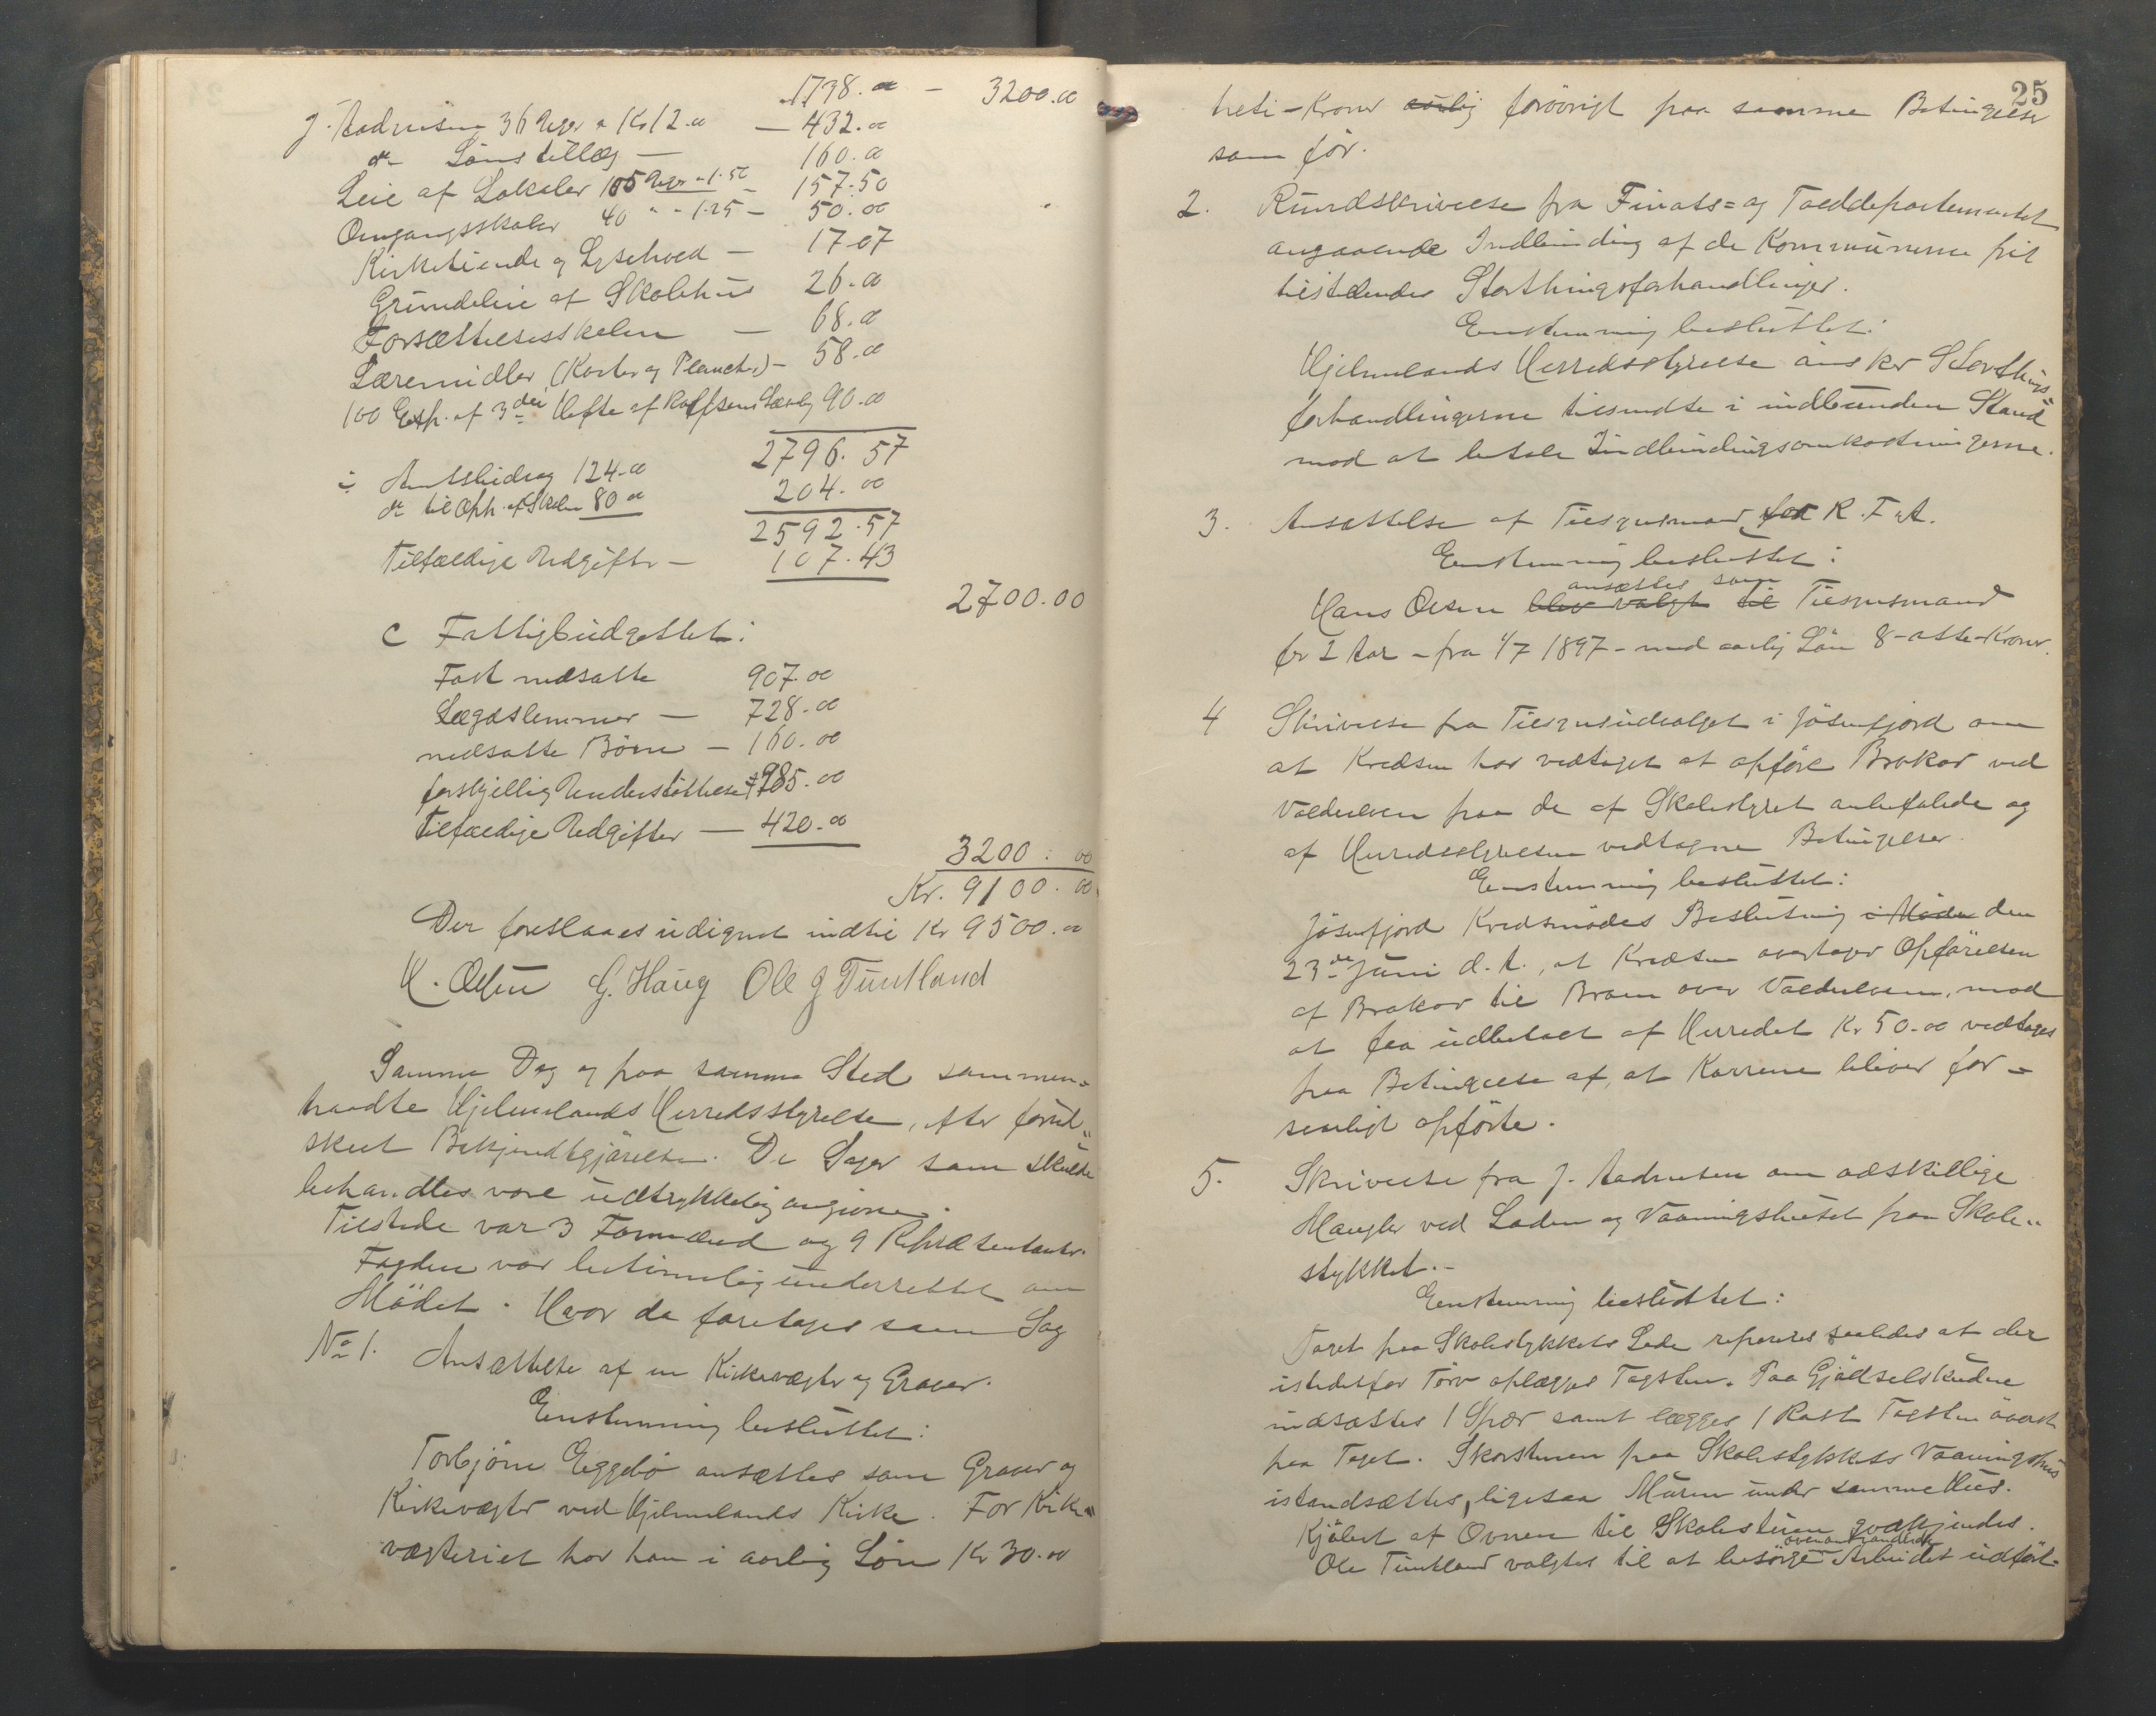 1738.00 — 3200.00
J. Aadnesen 36 Uger a Kr 12.00 — 432.00
do Lønstillæg — 160.00
Leie af Lokaler 105 Uger a 1.50 — 157.50
Omgangsskoler 40 " - 1.25 — 50.00
Kirketiende og Lysehved — 17.07
Grundeleie af Skolehus 26.00
Forsættelsesskolen — 68.00
Læremidler (Karter og Plancher) — 58.00
100 Exp. af 3die Hefte af Rolfsens Læsebog 90.00
2796.57
÷ Amtsbidrag 124.00
do til Oph. af Skolen 80.00 204.00
2592.57
Tilfældige Udgifter — 107.43
2700.00
C Fattigbudgettet:
Fast nedsatte 907.00
Lægdslemmer — 728.00
nedsatte Børn — 160.00
forskjellig Understøttelse 985.00
Tilfældige Udgifter — 420.00
3200:00
Kr. 9100.00
Der foreslaaes udignet indtil Kr 9500.00
H. Olsen G. Haug Ole J Tuntland
Samme Dag og paa samme Sted sammen-
traadte Hjelmelands Herredsstyrelse, efter forud-
skeet Bekjendtgjørelse. De Sager som skulde
behandles vare udtrykkelig angivne.
Tilstede var 3 Formænd og 9 Repræsentanter.
Fogden var betimelig underrettet om
Mødet. Hvor da foretoges som Sag
No 1. Ansættelse af en Kirkevægter og Graver.
Eenstemmig besluttet:
Torbjørn Eggebø ansættes som Graver og
Kirkevægter ved Hjelmelands Kirke. For Kirke-
vægteriet har han i aarlig Løn Kr 30.00
25
treti-Kroner aarlig forøvrigt paa samme Betingelser
som før.
2. Rundskrivelse fra Finats= og Tolddepartementet
angaaende Indbinding af de Kommunerne frit
tilstelledes Storthingsforhandlinger.
Eenstemmig besluttet:
Hjelmelands Herredsstyrelse ønsker Storthings-
forhandlingerne tilsendte i indbunden Stand
mod at betale Indbindingsomkostningerne.
3. Ansættelse af Tilsynsmand for R. F. A.
Eenstemmig besluttet:
ansættes som
Hans Olsen blev valgt til Tilsynsmand
for 2 Aar - fra 1/7 1897 - med aarlig Løn 8-otte-Kroner.
4 Skrivelse fra Tilsynsudvalget i Jøsenfjord om
at Kredsen har vedtaget at opføre Brokar ved
Vadeelven paa de af Skolestyret anbefalede og
af Herredsstyrelsen vedtagne Betingelser
Eenstemmig besluttet:
Jøsenfjord Kredsmødes Beslutning i Møde den
23de Juni d. A., at Kredsen overtager Opførelsen
af Brokar til Broen over Vadeelven, mod
at faa udbetalt af Herredet Kr 50.00 vedtages
paa Betingelse af, at Karrene bliver for-
svarligt opførte.
5. Skrivelse fra J. Aadnesen om adskillige
Mangler ved Laden og Vaaningshuset paa Skole-
stykket.-
Eenstemmig besluttet:
Taget paa Skolestykkets Lade repareres saaledes at der
istedetfor Torv oplægges Tagsten. Paa Gjødselskudne
indsættes 1 Spær samt lægges 1 Rast Tagsten øverst
paa Taget. Skorstenen paa Skolestykkets Vaaningshus
istandsættes, ligesaa Muren under samme Hus.
Kjøbet af Ovnen til Skolestuen godkjendes.
ovenomhandlede
Ole Tuntland valgtes til at besørge Arbeidet udført.